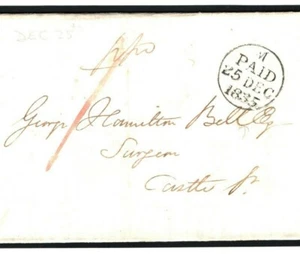 DEC 25
ppd
M
PAID
25 DEC
1835
George Hamilton Bell Esq
Surgeon
Castle St.